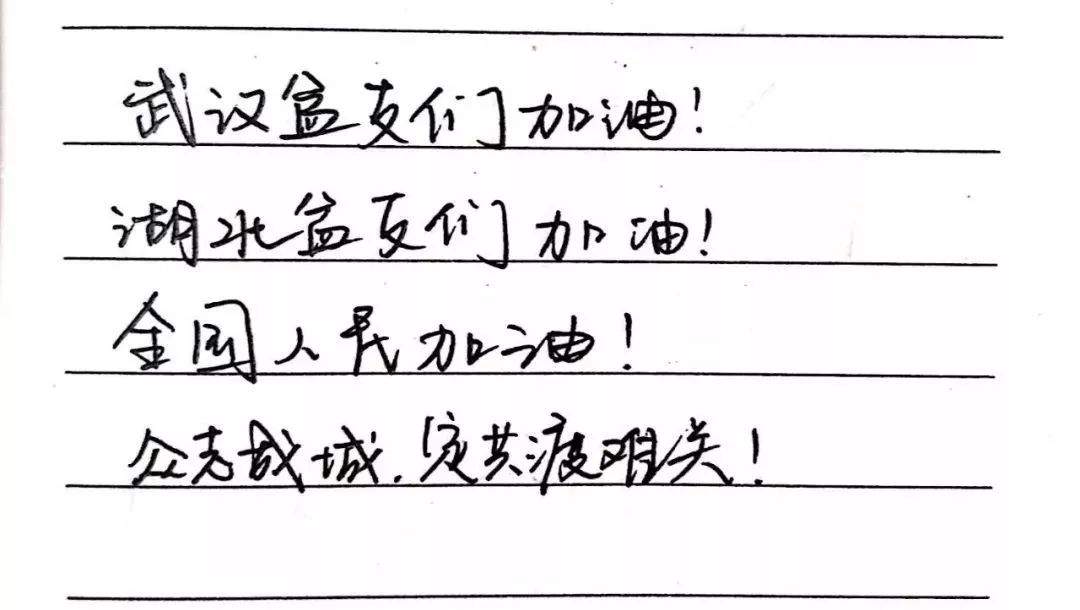 武汉盆友们加油！
湖北盆友们加油！
全国人民加油！
众志成城，定共渡难关！